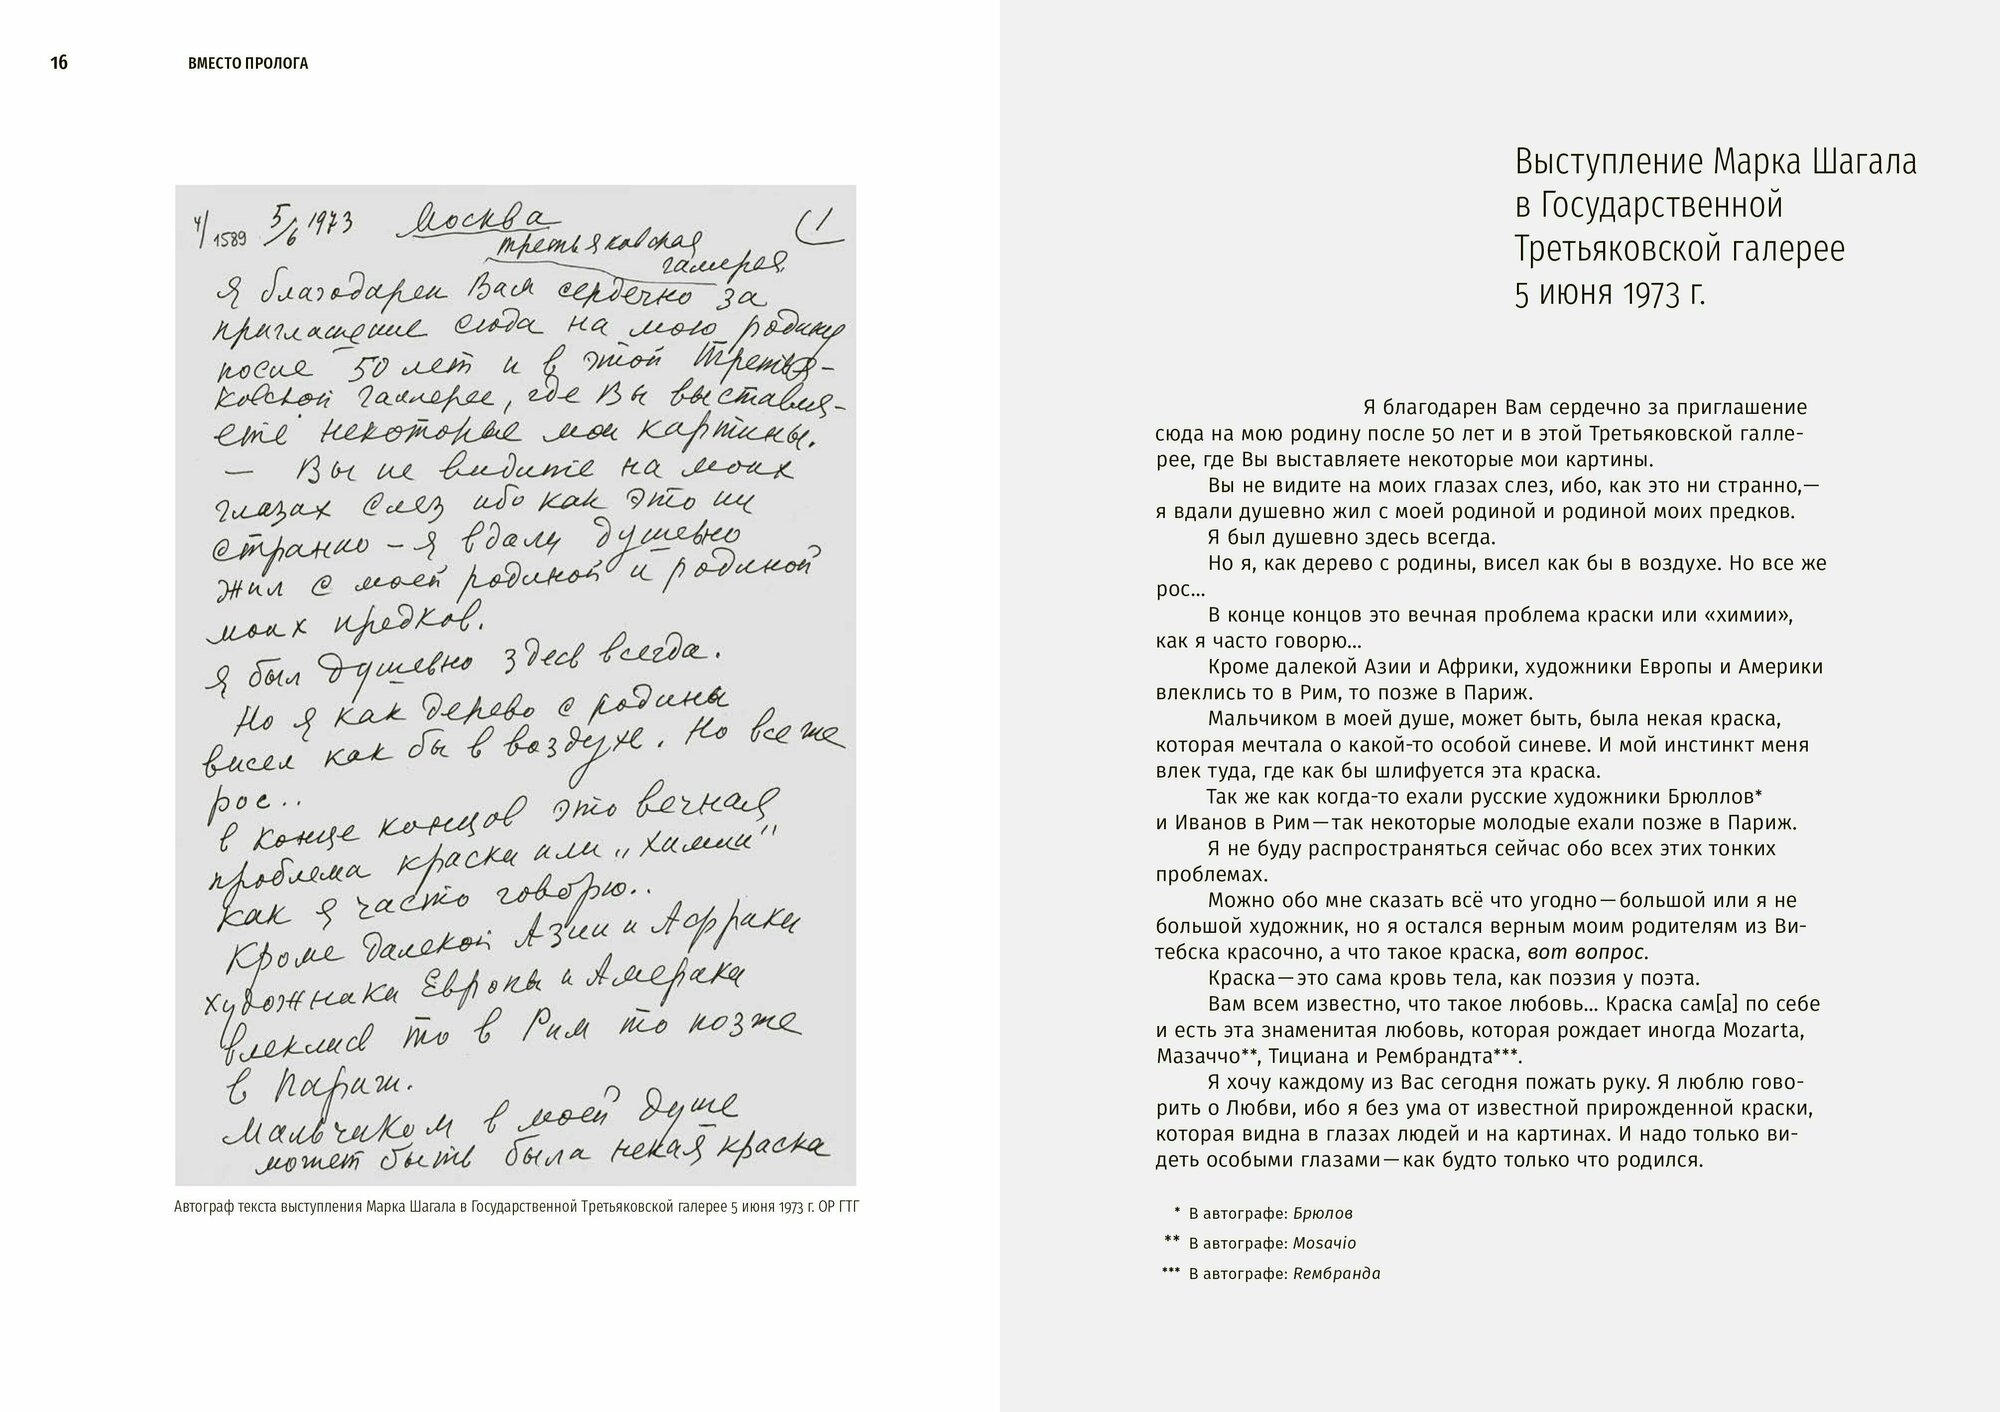 16
ВМЕСТО ПРОЛОГА
4/1589 5/6 1973 Москва (1
третьяковская
галерея
Я благодарен Вам сердечно за
приглашение сюда на мою родину
после 50 лет и в этой Третья-
ковской галлерее, где Вы выставля-
ете некоторые мои картины.
— Вы не видите на моих
глазах слез ибо как это ни
странно – я вдали душевно
жил с моей родиной и родиной
моих предков.
Я был душевно здесь всегда.
Но я как дерево с родины
висел как бы в воздухе. Но все же
рос..
В конце концов это вечная
проблема краски или „химии"
как я часто говорю..
Кроме далекой Азии и Африки
художники Европы и Америки
влеклись то в Рим то позже
в Париж.
Мальчиком в моей душе
может быть была некая краска
Автограф текста выступления Марка Шагала в Государственной Третьяковской галерее 5 июня 1973 г. ОР ГТГ
Выступление Марка Шагала
в Государственной
Третьяковской галерее
5 июня 1973 г.
Я благодарен Вам сердечно за приглашение
сюда на мою родину после 50 лет и в этой Третьяковской галле-
рее, где Вы выставляете некоторые мои картины.
Вы не видите на моих глазах слез, ибо, как это ни странно,—
я вдали душевно жил с моей родиной и родиной моих предков.
Я был душевно здесь всегда.
Но я, как дерево с родины, висел как бы в воздухе. Но все же
рос...
В конце концов это вечная проблема краски или «химии»,
как я часто говорю...
Кроме далекой Азии и Африки, художники Европы и Америки
влеклись то в Рим, то позже в Париж.
Мальчиком в моей душе, может быть, была некая краска,
которая мечтала о какой-то особой синеве. И мой инстинкт меня
влек туда, где как бы шлифуется эта краска.
Так же как когда-то ехали русские художники Брюллов*
и Иванов в Рим—так некоторые молодые ехали позже в Париж.
Я не буду распространяться сейчас обо всех этих тонких
проблемах.
Можно обо мне сказать всё что угодно—большой или я не
большой художник, но я остался верным моим родителям из Ви-
тебска красочно, а что такое краска, вот вопрос.
Краска—это сама кровь тела, как поэзия у поэта.
Вам всем известно, что такое любовь... Краска сам[а] по себе
и есть эта знаменитая любовь, которая рождает иногда Mozarta,
Мазаччо**, Тициана и Рембрандта***.
Я хочу каждому из Вас сегодня пожать руку. Я люблю гово-
рить о Любви, ибо я без ума от известной прирожденной краски,
которая видна в глазах людей и на картинах. И надо только ви-
деть особыми глазами—как будто только что родился.
* В автографе: Брюлов
** В автографе: Mosaчio
*** В автографе: Rембранда